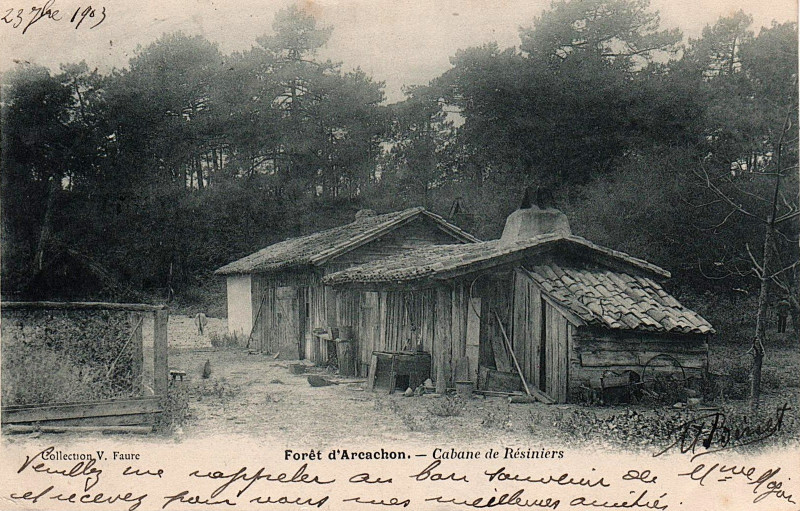 23 7bre 1903
Collection V. Faure
Forêt d'Arcachon. — Cabane de Résiniers
Veuillez me rappeler au bon souvenir de Mme
et recevez pour vous mes meilleures amitiés.